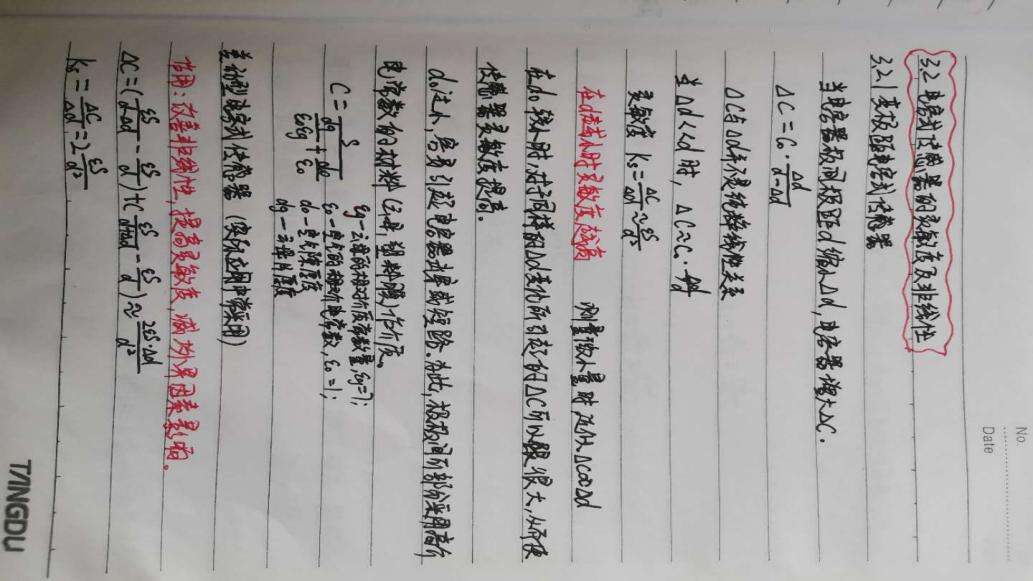 No.
Date
3.2 电容式传感器的灵敏度及非线性
3.2.1 变极距电容式传感器
当电容器极间极距d缩小Δd,电容器增大ΔC.
ΔC = C₀ · Δd/(d-Δd)
ΔC与Δd并不是纯粹线性关系
当Δd<<d时, ΔC≈C₀ · Δd/d
灵敏度 Ks = ΔC/Δd ≈ εS/d²
在d越小时灵敏度越高 测量微小量时,近似ΔC∝Δd
在d₀较小时,对于同样的Δd变化所引起的ΔC可以很大,从而使
传感器灵敏度提高。
d₀过小,容易引起电容器击穿或短路。为此,极板间可部分采用高介
电常数的材料(云母、塑料膜)作介质。
C = S/(dg/ε₀εg + d₀/ε₀) εg-云母的相对介质常数量,εg=7;
ε₀-空气的相对介电常数,ε₀=1;
d₀-空气隙厚度
dg-云母片厚度
差动型电容式传感器(实际应用中常采用)
作用:改善非线性,提高灵敏度,减小外界因素影响。
ΔC = (εS/(d-Δd) - εS/d) + (εS/(d+Δd) - εS/d) ≈ 2εS·Δd/d²
ks = ΔC/Δd = 2 εS/d²
TANGDU